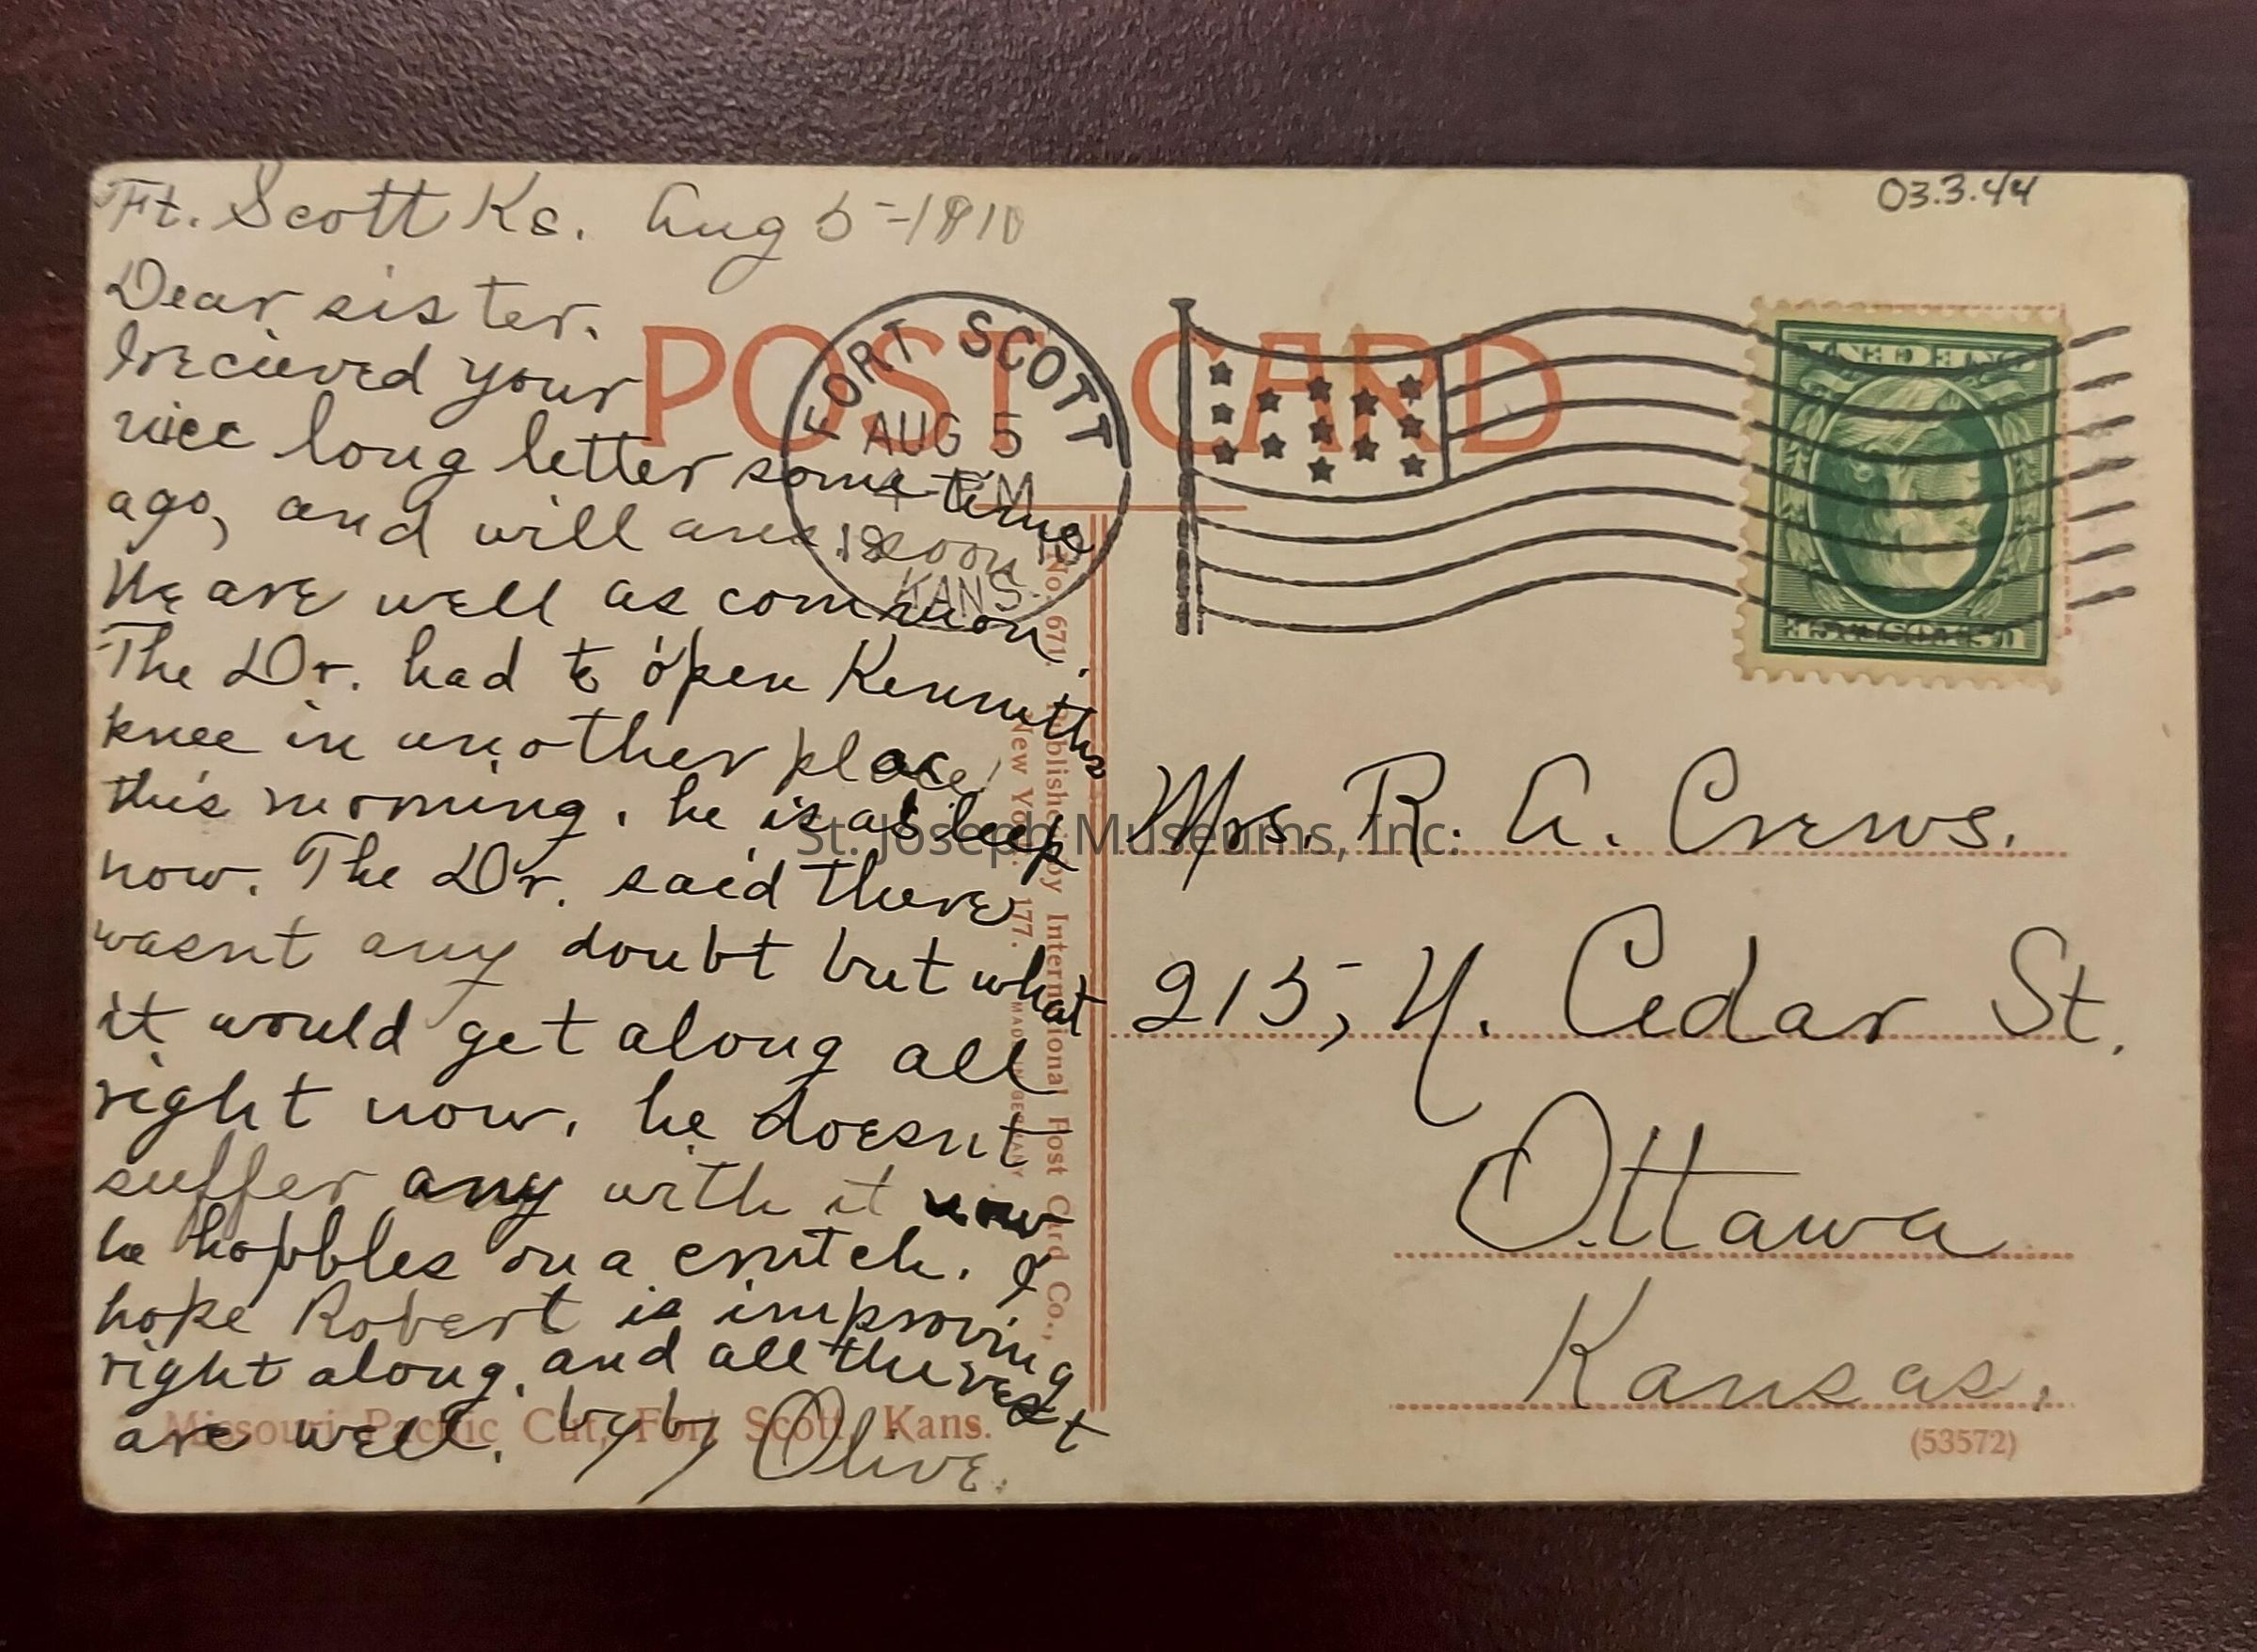 Ft. Scott Ks. Aug 5-1910
03.3.44
Dear sister.
I recieved your
nice long letter some time
ago, and will ans. soon
We are well as common.
The Dr. had to open Kenneths
knee in another place
this morning. he is asleep
now. The Dr. said there
wasnt any doubt but what
it would get along all
right now. he doesnt
suffer any with it now
he hobbles on a crutch. I
hope Robert is improving
right along. and all the rest
are well. by by Olive.
POST CARD
FORT SCOTT
AUG 5
PM
KANS.
Mrs. R. A. Crews.
215, N. Cedar St.
Ottawa
Kansas.
No. 671. Published by International Post Card Co.,
New York. 177. MADE IN GERMANY
Missouri Pacific Cut, Fort Scott, Kans.
(53572)
St. Joseph Museums, Inc.